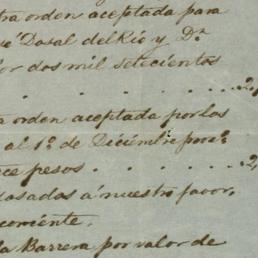 tra orden aceptada para
sé Dosal del Rio y Dn
or dos mil setecientos
. . . . . . . 2,
a orden aceptada por los
al 1º de Diciembre por
ce pesos . . . . . . 2,
dosadas á nuestro favor,
corriente.
la Barrera por valor de